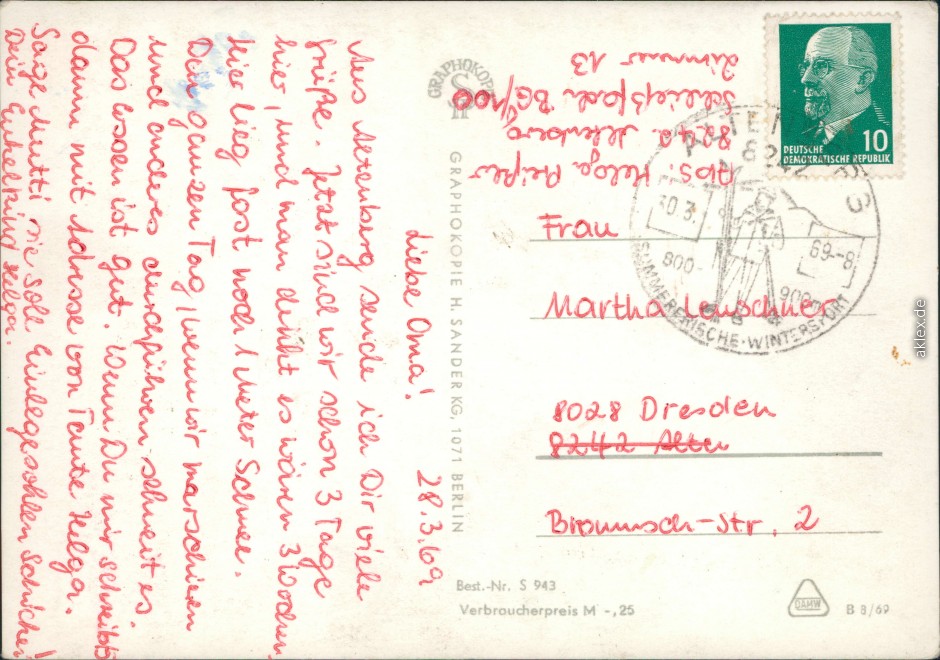 Liebe Oma! 28.3.69
Aus Altenberg sende ich Dir viele
Grüße. Jetzt sind wir schon 3 Tage
hier, und man denkt es wären 3 Wochen.
Hier lieg fast noch 1 Meter Schnee.
Den ganzen Tag, wenn wir marschieren
und anderes durchführen schneit es.
Das Essen ist gut. Wenn Du mir schreibst
dann mit Adresse von Tante Helga.
Sage Mutti sie soll Einlegesohlen schicken!
Dein Enkelkind Helga.
GRAPHOKOPIE
GRAPHOKOPIE H. SANDER KG, 1071 BERLIN
Abs. Helga
8242 Altenberg
Schließfach BG/100
Zimmer 13
10
DEUTSCHE
DEMOKRATISCHE REPUBLIK
ALTENBERG
8242
30.3.
69-8
800-
900m
SOMMERFRISCHE · WINTERSPORT
Frau
Martha Leuschner
8028 Dresden
8242 Alten
Braunsch-Str. 2
Best.-Nr. S 943
Verbraucherpreis M -,25
DAHW
B 8/69
aklex.de